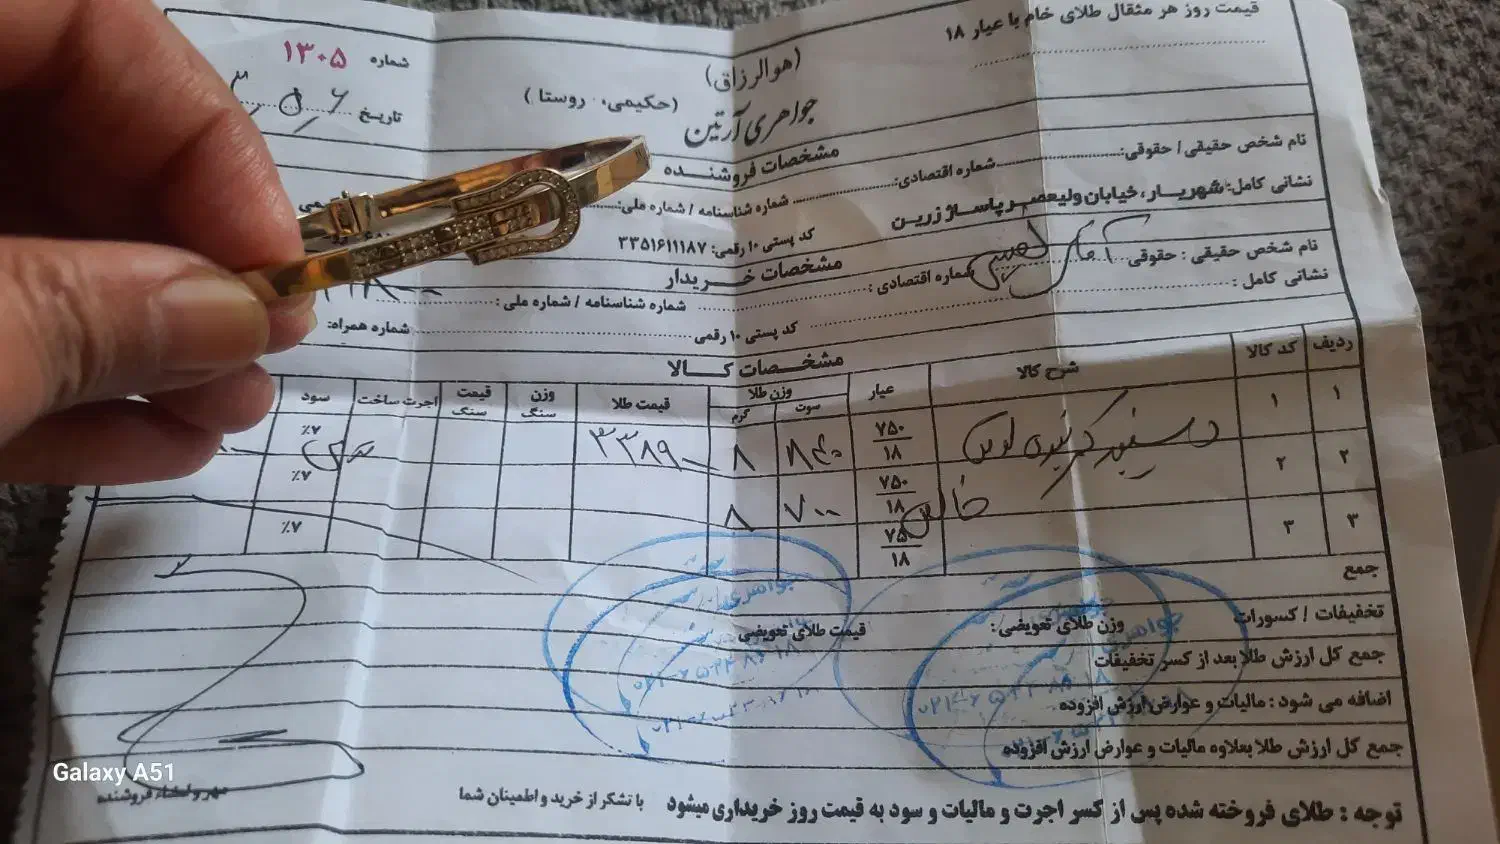 قیمت روز هر مثقال طلای خام با عیار ۱۸
(هوالرزاق)
شماره ۱۳۰۵
جواهری آرتین
(حکیمی، روستا)
تاریخ
مشخصات فروشنده
نام شخص حقیقی / حقوقی: شماره اقتصادی: شماره شناسنامه / شماره ملی:
نشانی کامل: شهریار، خیابان ولیعصر پاساژ زرین
کد پستی ۱۰ رقمی: ۳۳۵۱۶۱۱۱۸۷
مشخصات خریدار
نام شخص حقیقی : حقوقی شماره اقتصادی : شماره شناسنامه / شماره ملی :
نشانی کامل : کد پستی ۱۰ رقمی شماره همراه:
مشخصات کالا
ردیف کد کالا شرح کالا عیار وزن طلا سوت گرم قیمت طلا وزن سنگ قیمت سنگ اجرت ساخت سود
۱ ۱ دستبند ۷۵۰ ۱۸ ۸۴۰ ۸ ۳۳۸۹۰۰۰ ٪۷
۲ ۲ خالص ۷۵۰ ۱۸ ۷۰۰ ۸ ٪۷
۳ ۳ ۷۵۰ ۱۸ ٪۷
جمع
تخفیفات / کسورات وزن طلای تعویضی: قیمت طلای تعویضی
جمع کل ارزش طلا بعد از کسر تخفیفات
اضافه می شود : مالیات و عوارض ارزش افزوده
جمع کل ارزش طلا بعلاوه مالیات و عوارض ارزش افزوده
جواهری
جواهری
توجه : طلای فروخته شده پس از کسر اجرت و مالیات و سود به قیمت روز خریداری میشود
با تشکر از خرید و اطمینان شما
مهر و امضاء فروشنده
Galaxy A51